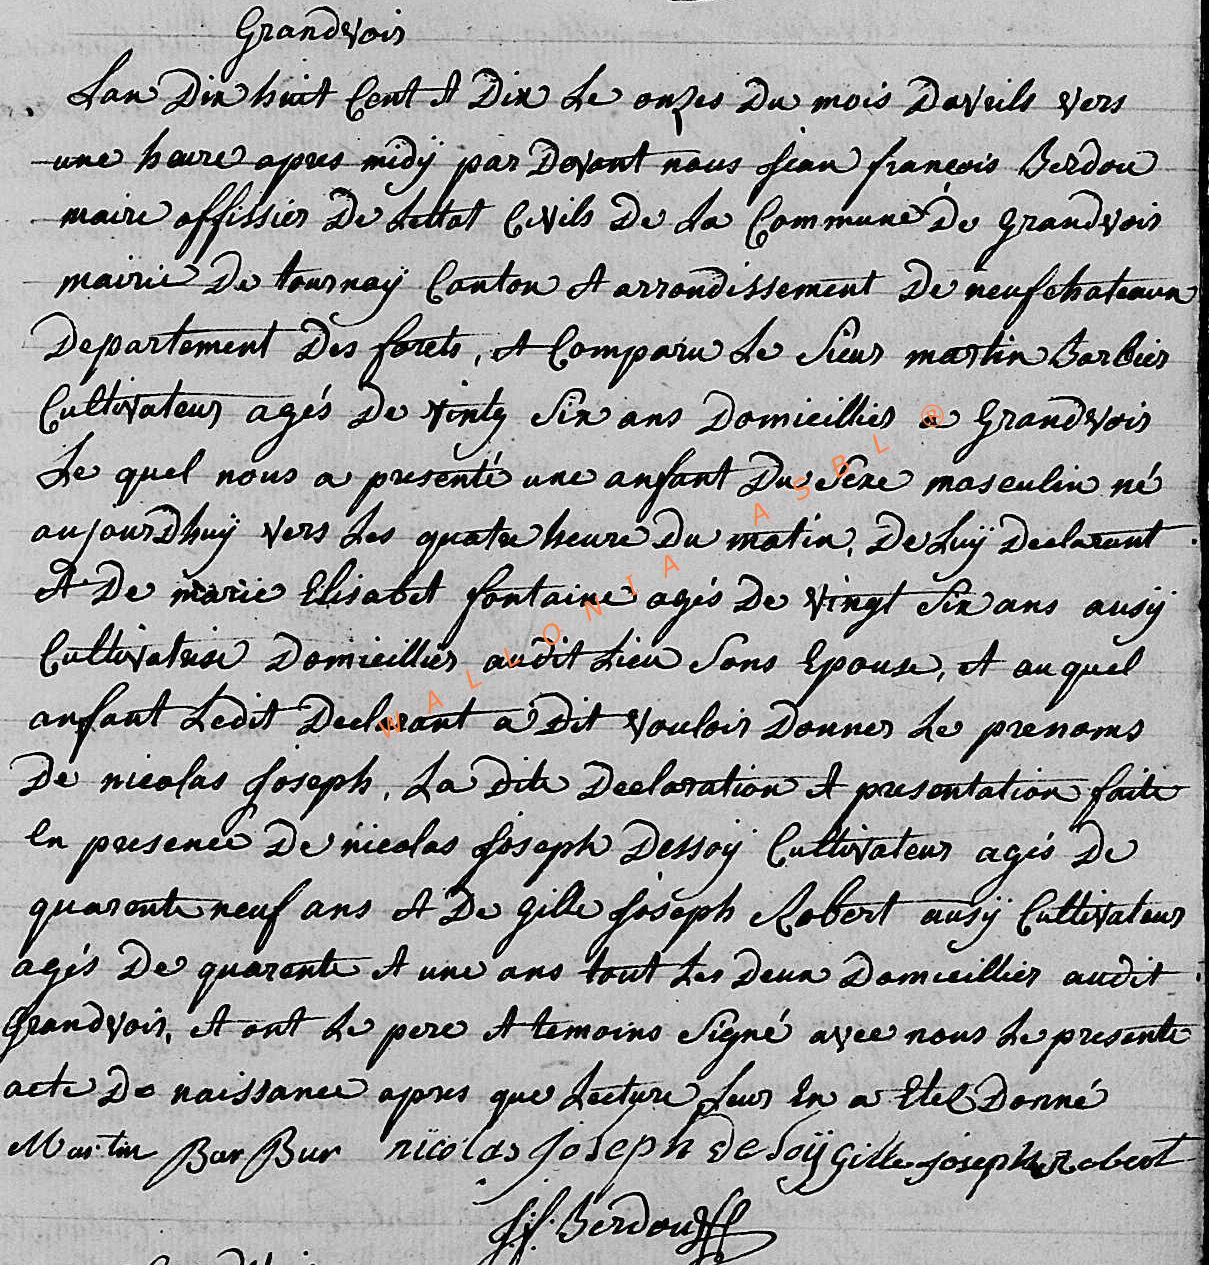 Grandvoir
Lan Dix huit Cent et Dix Le onzes Du mois Davrils vers
une heure apres midÿ par Devant nous jean françois Berdou
maire offissier De Lettat Civils De La Commune De Grandvoir
mairie De tournaÿ Canton et arrondissement De neufchateaux
Departement Des forets, et Comparu Le Sieur martin Barbier
Cultivateur agés De vintg Six ans Domicillier a Grandvoir
Le quel nous a presenté une anfant Du Sexe masculin né
aujourDhuÿ vers Les quatre heure Du matin, De Luÿ Declarant
et De marie Elisabet fontaine agés De vingt Six ans ausÿ
Cultivatrise Domicillier audit Lieu Sons Epouse, et au quel
anfant Ledit Declarant a Dit vouloir Donner Le prenoms
De nicolas joseph, La Dite Declaration et presentation faite
En presence De nicolas joseph Dessoÿ Cultivateur agés De
quarente neuf ans et De gille joseph Robert ausÿ Cultivateur
agés De quarente et une ans tout Les Deux Domicillier audit
Grandvoir, et ont Le pere et temoins Signé avec nous Le presente
acte De naissance apres que Lecture Leur En a Etet Donné
Martin Bar Bur nicolas joseph de Soÿ Gille joseph Robert
j f. Berdou
WALLONIA ASBL ®